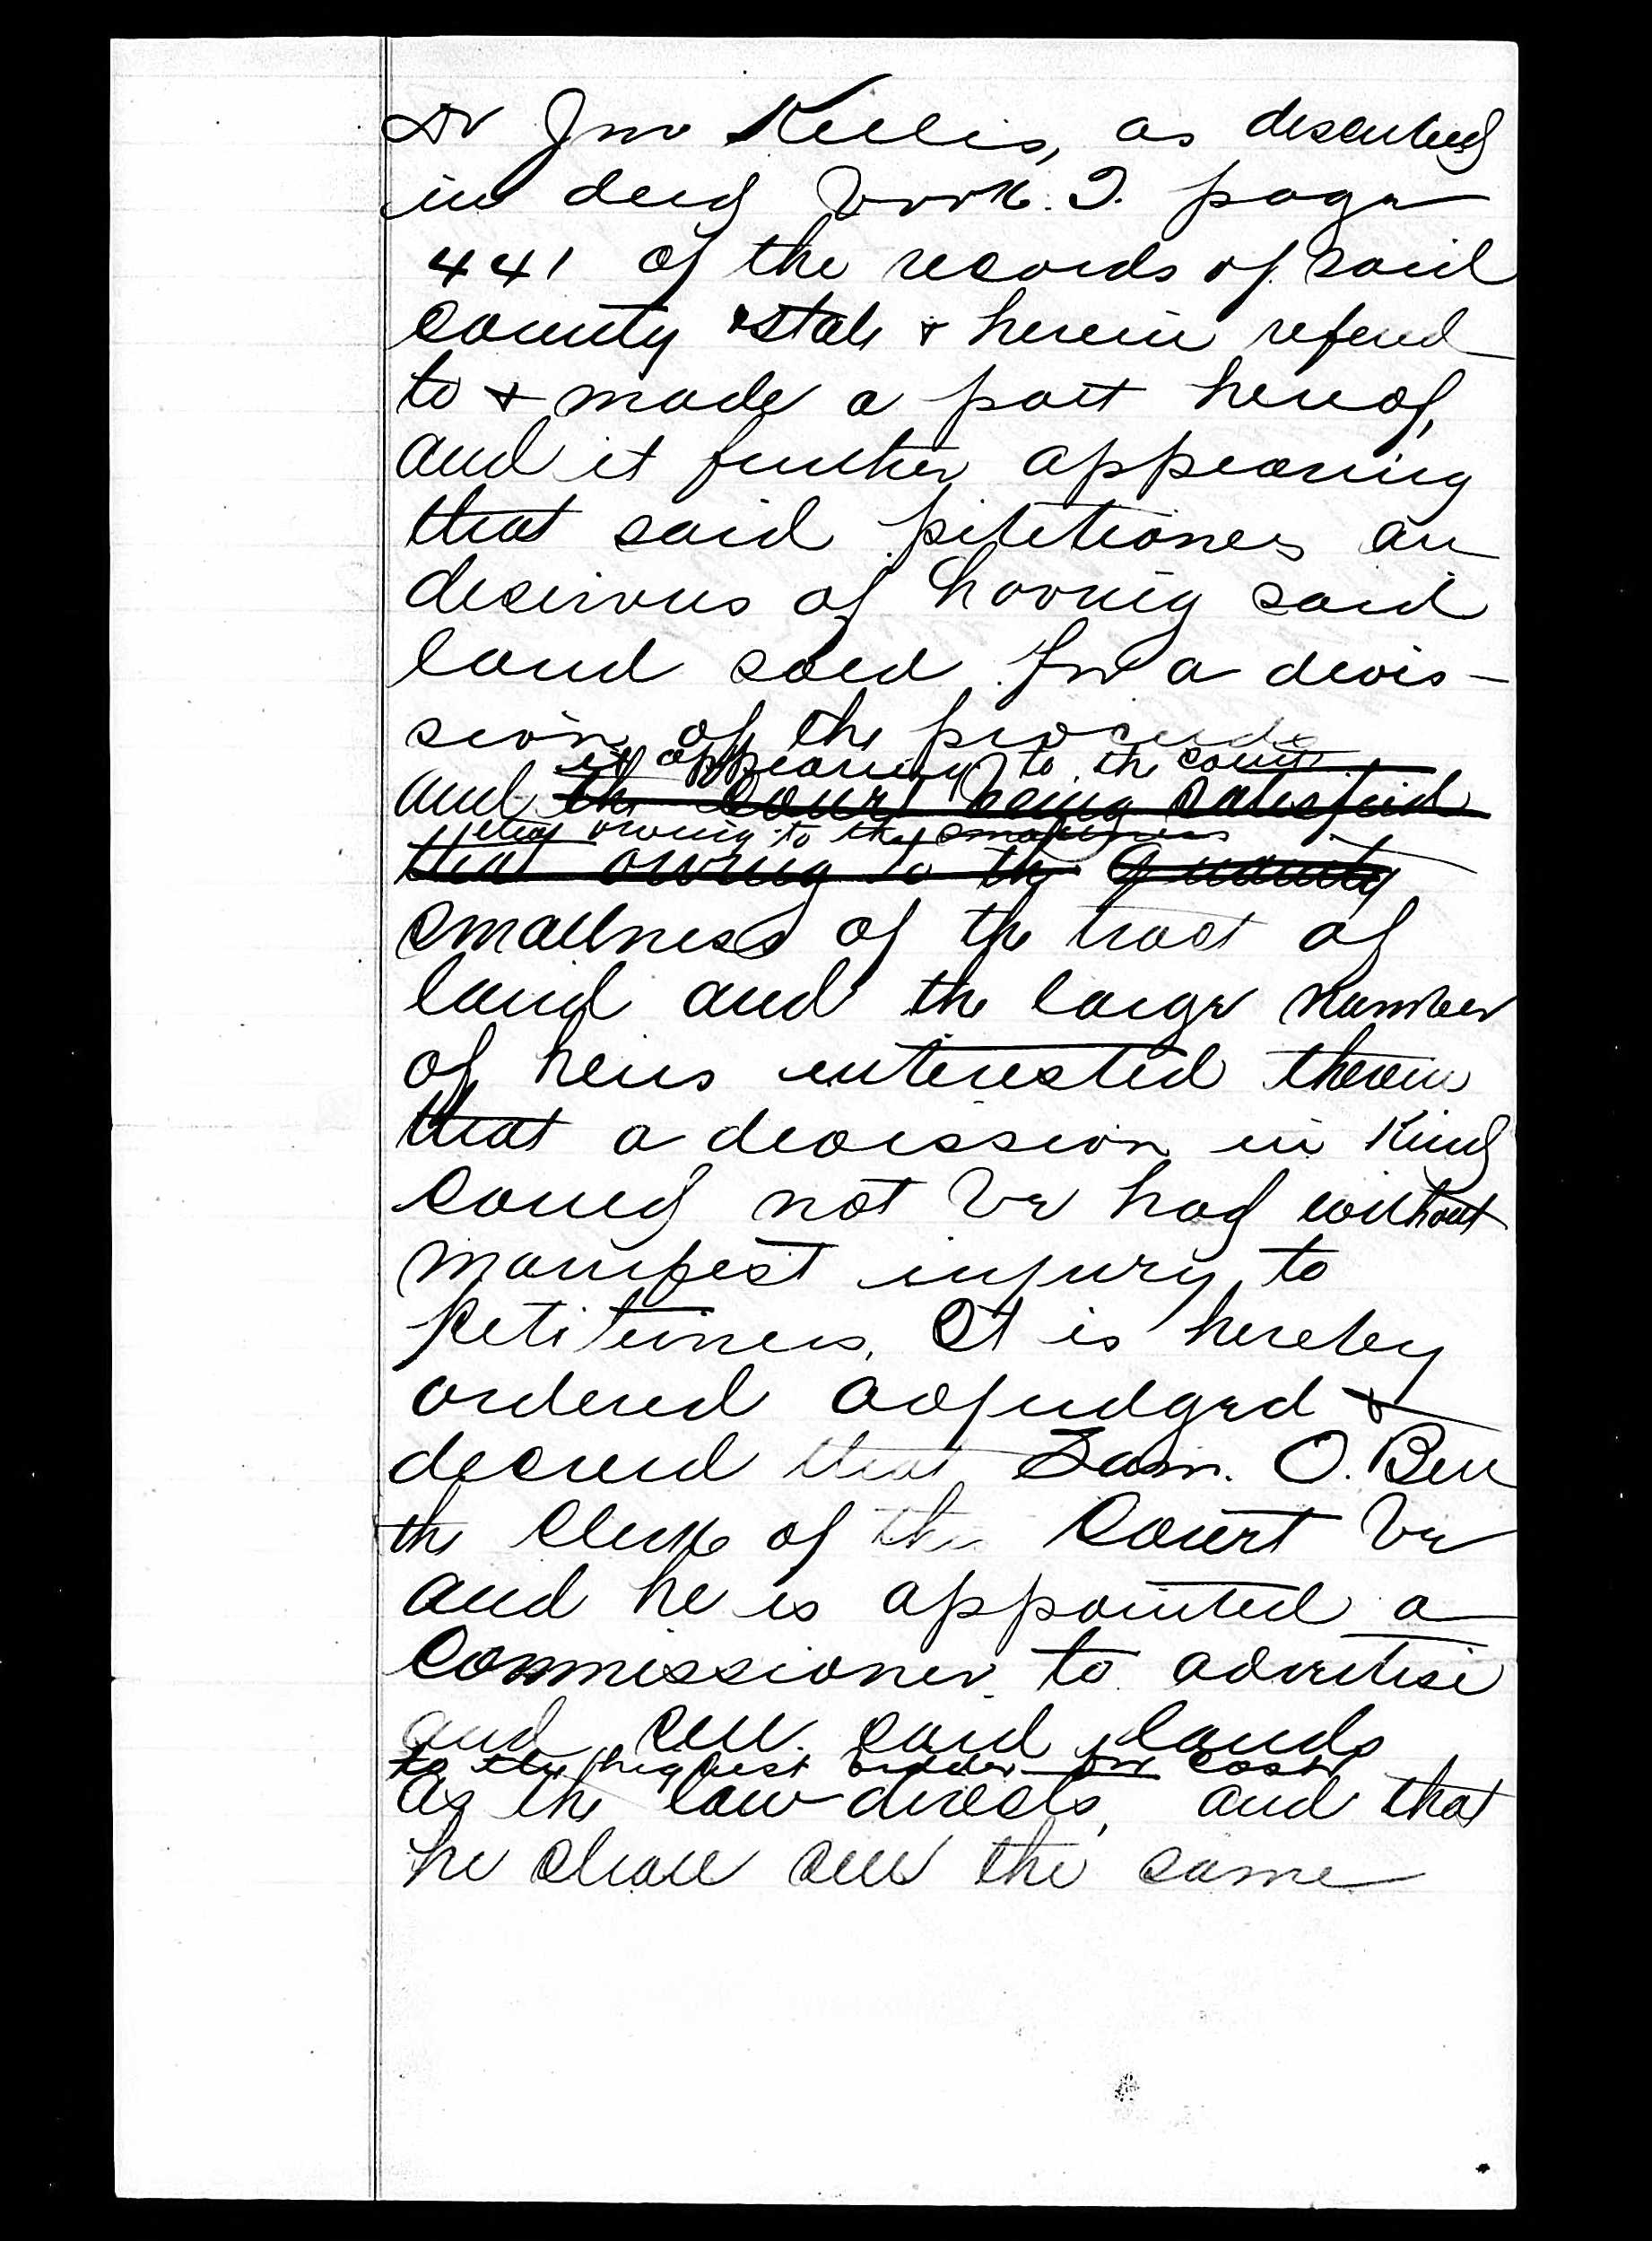 to Jno Kellis, as described
in deed book. I. page
441 of the records of said
County & State & herein refered
to & made a part hereof,
and it further appearing
that said petitioners are
desirous of having said
land sold for a divis-
sion of the proceeds
it appearing to the court
and the Court being satisfied
that owing to the smallness
that owing to the quantity
smallness of the tract of
land and the large number
of heirs interested therein
that a devission in kind
could not be had without
manifest injury to
petitioners. It is hereby
ordered adjudged &
decreed that Sam. O. Bell
the Clerk of this Court be
and he is appointed a
Commissioner to advertise
and sell said lands
to the highest bidder for cash
as the law directs, and that
he shall sell the same